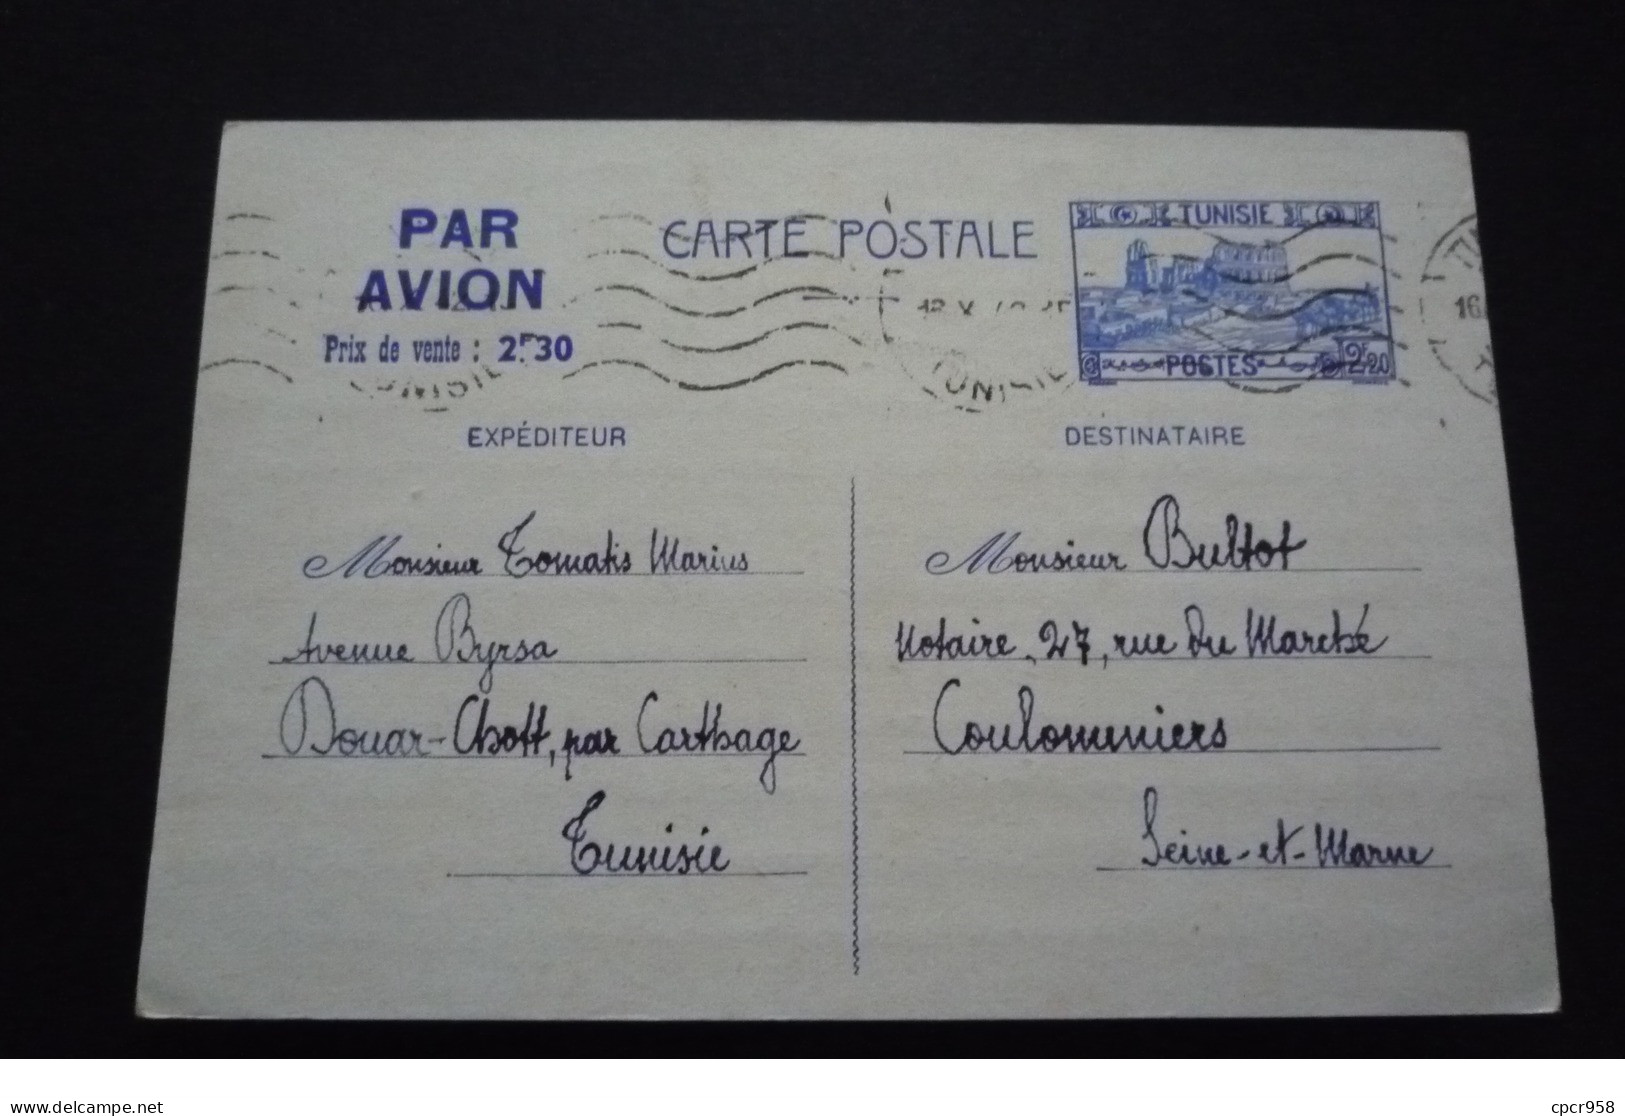 PAR
AVION
Prix de vente : 2F30
CARTE POSTALE
TUNISIE
POSTES 2F20
TUNISIE
EXPÉDITEUR
Monsieur Tomatis Marius
Avenue Byrsa
Douar-Chott, par Carthage
Tunisie
DESTINATAIRE
Monsieur Bultot
Notaire, 27, rue du Marché
Coulommiers
Seine-et-Marne
delcampe.net
cpcr958